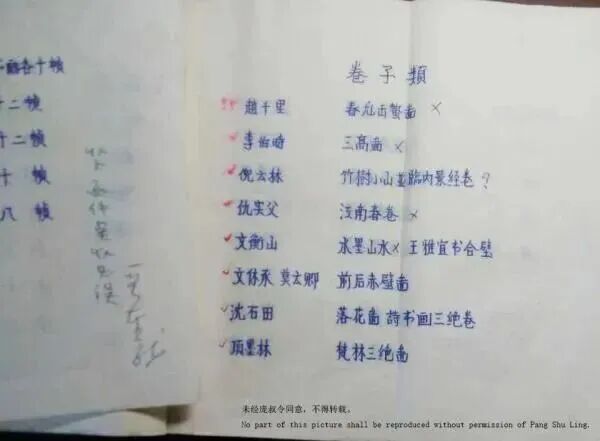 各十幀
十二幀
十二幀
十 幀
八 幀
卷子類
趙千里 春龙出蟄啚 ×
李伯時 三高啚 ×
倪云林 竹樹小山並臨内景经卷 ?
仇实父 江南春卷 ×
文衡山 水墨山水× 王雅宜书合璧
文休承 莫云卿 前后赤壁啚
沈石田 落花啚 詩书画三绝卷
項墨林 梵林三绝啚
未经庞叔令同意，不得转载。
No part of this picture shall be reproduced without permission of Pang Shu Ling.